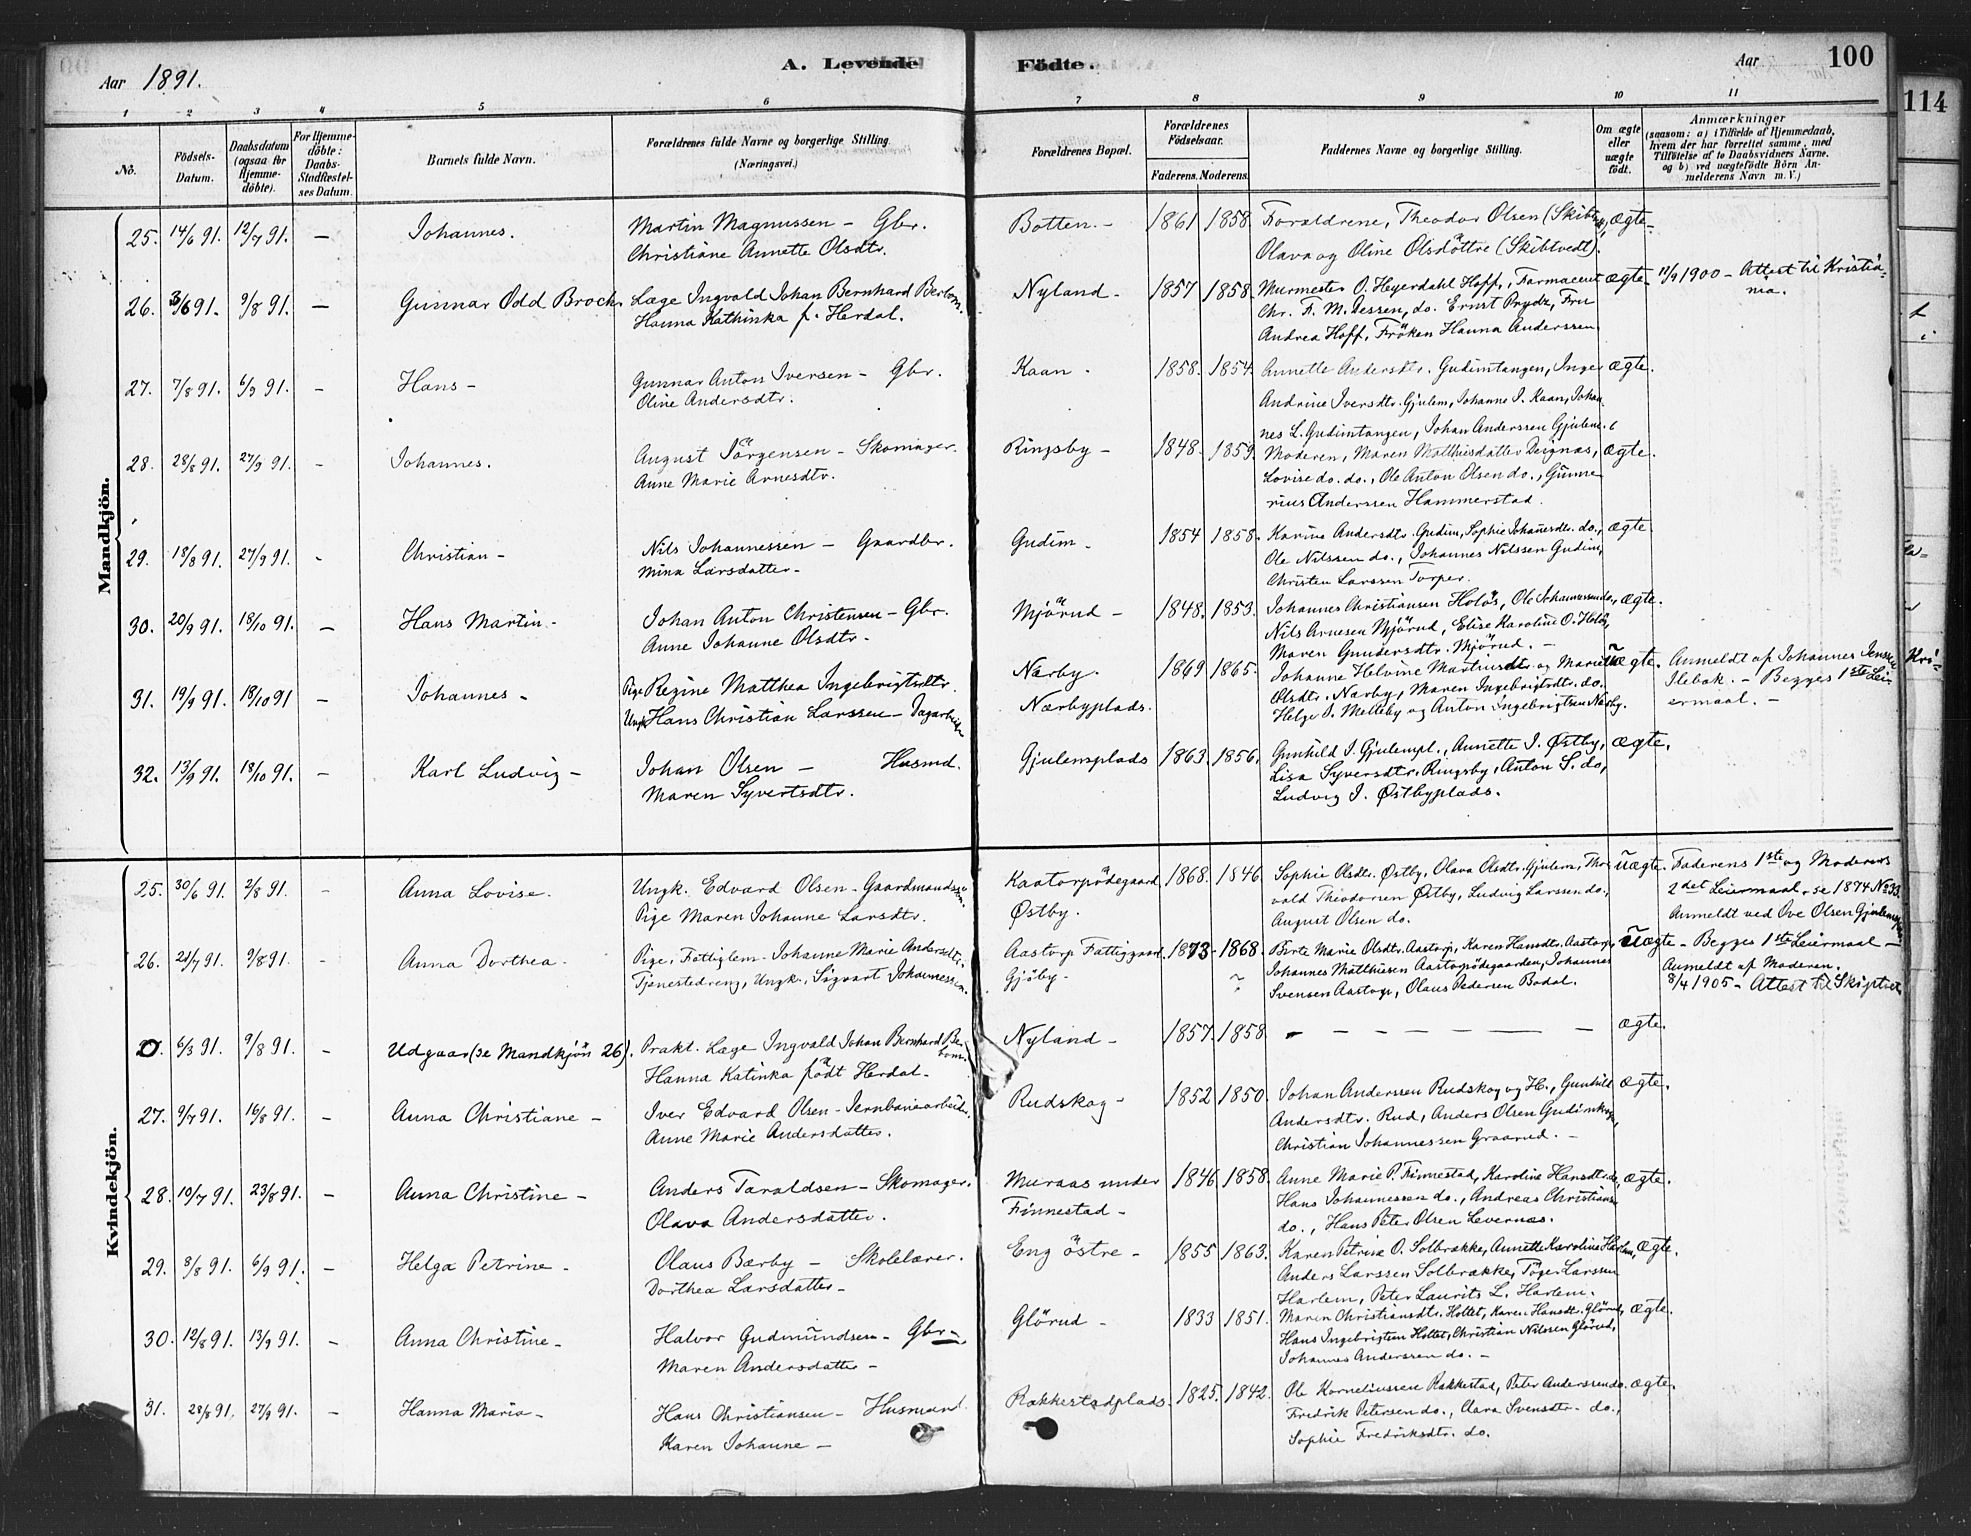 Aar 1891.
A. Levende
Födte.
Aar
100
114
1 2 3 4 5 6 7 8 9 10 11
No.
Födsels-Datum.
Daabsdatum (ogsaa for Hjemme-döbte).
For Hjemme-döbte: Daabs-Stadfæstel-ses Datum.
Barnets fulde Navn.
Forældrenes fulde Navne og borgerlige Stilling.
(Næringsvei.)
Forældrenes Bopæl.
Forældrenes Födselsaar.
Faderens. Moderens.
Faddernes Navne og borgerlige Stilling.
Om ægte eller uægte födt.
Anmærkninger
(saasom: a) i Tilfælde af Hjemmedaab, hvem der har forrettet samme, med Tilföielse af to Daabsvidners Navne. og b) ved uægtefödte Börn An-melderens Navn m. V.)
Mandkjön.
25. 14/6 91. 12/7 91. – Johannes. Martin Magnussen – Gbr. Botten. – 1861 1858. Forældrene, Theodor Olsen ægte –
Christiane Annette Olsdtr. Olava og Oline Olsdöttre (Skibtvedt).
26. 3/6 91. 9/8 91. – Gunnar Odd Broch. Læge Ingvald Johan Bernhard Berbom. Nyland – 1857 1858. Murmester O. Heyerdahl Hoff, Farmaceut ægte – 11/9 1900 – Attest til Kristia-
Hanna Kathinka f. Herdal. Chr. F. M. Dessen, do. Ernst Prydz, Fru nia.
Andrea Hoff, Fröken Hanna Anderssen.
27. 7/8 91. 6/9 91. – Hans – Gunnar Anton Iversen – Gbr. Kaan – 1858. 1854. Annette Andersdtr. Gudimtangen, Inger ægte.
Oline Andersdtr. Andrine Iversdtr. Gjulem, Johanne I. Kaan, Johan-
nes L. Gudimtangen, Johan Anderssen Gjulem.
28. 28/8 91. 27/9 91. – Johannes. August Jörgensen – Skomager. Ringsby – 1848. 1859. Moderen, Maren Matthisdatter Deignæs, ægte.
Anne Marie Arnesdtr. Lovise do. do., Ole Anton Olsen do., Gunne-
rius Anderssen Hammerstad.
29. 18/8 91. 27/9 91. – Christian – Nils Johannessen – Gaardbr. Gudim – 1854 1858. Karine Andersdtr. Gudim, Sophie Johannesdtr. do., ægte
Mina Larsdatter – Ole Nilssen do., Johannes Nilssen Gudim,
Christen Larssen Torper.
30. 20/9 91. 18/10 91. – Hans Martin – Johan Anton Christensen – Gbr. Mjörud – 1848. 1853. Johannes Christiansen Holös, Ole Johannessen do., ægte.
Anne Johanne Olsdtr. Nils Arnesen Mjörud, Elise Karoline O. Holös,
Maren Gundersdtr. Mjörud. –
31. 19/9 91. 18/10 91 – Johannes – Pige Regine Matthea Ingebrigtsdtr. Nærby. 1869 1865. Johanne Helvine Martinsdtr. og Mariethe uægte. Anmeldt af Johannes Jensen
Ungk. Hans Christian Larssen – Dagarbeider Nærbyplads. Olsdtr. Nærby, Maren Ingebrigtsdtr. do. Ilebæk. – Begges 1ste Lei-
Helge I. Melleby og Anton Ingebrigtsen Nærby. ermaal. –
32. 13/9 91. 18/10 91. – Karl Ludvig – Johan Olsen – Husmd. Gjulemplads 1863. 1856. Gunhild I. Gjulempl., Annette I. Østby, ægte.
Maren Syvertsdtr. Lisa Syversdtr. Ringsby, Anton S. do,
Ludvig I. Østbyplads.
Kvindekjön.
25. 30/6 91. 2/8 91. – Anna Lovise. Ungk. Edvard Olsen – Gaardmandssön. Kaatorpödegaard 1868. 1846. Sophie Olsdtr. Østby, Olava Olsdtr. Gjulem, Tho- uægte. Faderens 1ste og Moderens
Pige Maren Johanne Larsdtr. Østby. vald Theodorsen Østby, Ludvig Larssen do., 2det Leiermaal – se 1874 No 33.
August Olsen do. Anmeldt ved Ove Olsen
26. 21/7 91. 9/8 91. – Anna Dorthea. Pige, Fattiglem – Johanne Marie Andersdtr. Aastorp Fattiggaard. 1873 – 1868. Berte Marie Olsdtr. Aastorp, Karen Hansdtr. Aastorp, Uægte – Begges 1ste Leiermaal –
Tjenestedreng, Ungk., Sigvart Johannessen. Gjöby – Johannes Matthisen Aastorpödegaarden, Johannes Anmeldt af Moderen.
Svensen Aastorp, Olaus Pedersen Bodal. 8/4 1905 – Attest til Skiptvet
0 6/3 91. 9/8 91. – Udgaar (se Mandkjön 26). Prakt. Læge Ingvald Johan Bernhard Ber- Nyland – 1857. 1858. – – – – – – ægte.
bom.
Hanna Katinka född Herdal –
27. 9/7 91. 16/8 91. – Anna Christiane – Iver Edvard Olsen – Jernbanearbeider. Rudskog – 1852 1850. Johan Anderssen Rudskog og H., Gunhild ægte.
Anne Marie Andersdatter. Andersdtr. Rud, Anders Olsen
Christian Johannessen Graarud. –
28. 10/7 91. 23/8 91. – Anna Christine – Anders Taraldsen – Skomager. Muraas under 1846 1858. Anne Marie P. Finnestad, Karoline Hansdtr. do, ægte.
Olava Andersdatter. Finnestad – Hans Johannessen do., Andreas Christiansen
do., Hans Peter Olsen Levernæs.
29. 8/8 91. 6/9 91. – Helga Petrine – Olaus Bærby – Skolelærer. Eng östre – 1855 1863. Karen Petrine O. Solbrække, Annette Karoline Harlem, ægte.
Dorthea Larsdatter – Anders Larssen Solbrække, Töger Larssen
Harlem, Peter Laurits L. Harlem.
30. 12/8 91. 13/9 91. – Anna Christine – Halvor Gudmundsen – Gbr – Glörud – 1833 1851. Maren Christiansdtr. Holtet, Karen Hansdtr. Glörud, ægte.
Maren Andersdatter – Hans Ingebrigtsen Holtet, Christian Nilssen Glörud,
Johannes Anderssen do. –
31. 28/8 91. 27/9 91. – Hanna Maria – Hans Christiansen – Husmand. Rakkestadplads. 1825. 1842. Ole Korneliussen Rakkestad, Peter Anderssen do. ægte.
Karen Johanne – Fredrik Petersen do., Clara Svensdtr. do.,
Sophie Fredriksdtr. do.